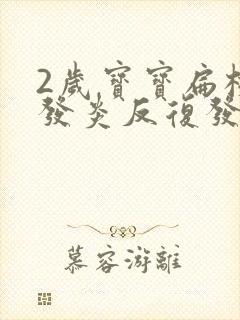 2歲寶寶扁桃
發炎反復發
慕容游離